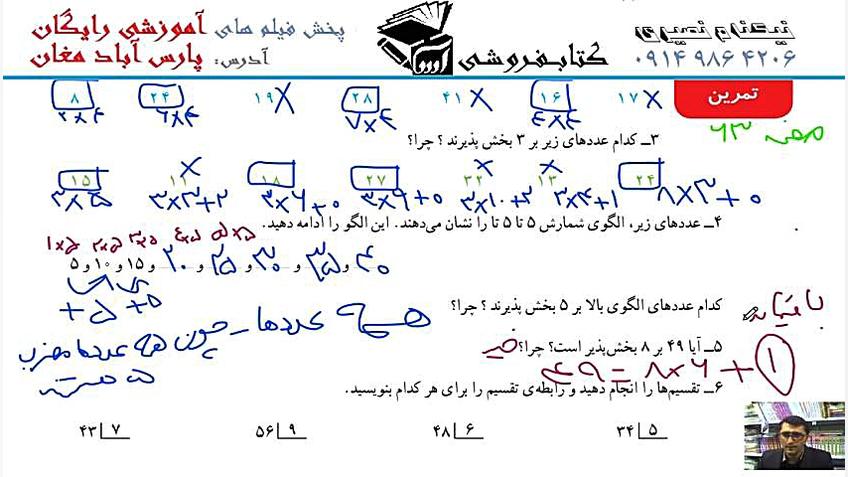 نیکنام نصیری
۰۹۱۴ ۹۸۶ ۴۲۰۶
کتابفروشی
پخش فیلم های آموزشی رایگان
آدرس: پارس آباد مغان
تمرین
صفحه ۶۳
۱۷ X ۱۶ ۴۱ X ۲۸ ۱۹ X ۲۴ ۸
۴×۴ ۷×۴ ۶×۴ ۲×۴
۳ــ کدام عددهای زیر بر ۳ بخش پذیرند ؟ چرا؟
۲۴ ۱۳ X ۳۲ X ۲۷ ۱۸ ۱۱ X ۱۵
۸×۳+۰ ۳×۴+۱ ۳×۱۰+۲ ۳×۹+۰ ۳×۶+۰ ۳×۳+۲ ۳×۵
۴ــ عددهای زیر، الگوی شمارش ۵ تا ۵ تا را نشان می‌دهند. این الگو را ادامه دهید.
۱×۵ ۲×۵ ۳×۵ ۴×۵ ۵×۵
۵ و ۱۰ و ۱۵ و ۲۰ و ۲۵ و ۳۰ و ۳۵ و ۴۰
+۵ +۵
کدام عددهای الگوی بالا بر ۵ بخش پذیرند ؟ چرا؟
همه عددها – چون همه عددها مضرب ۵ هستند
۵ــ آیا ۴۹ بر ۸ بخش‌پذیر است؟ چرا؟ خیر
باقیمانده
۴۹ = ۸×۶ + ۱
۶ــ تقسیم‌ها را انجام دهید و رابطه‌ی تقسیم را برای هر کدام بنویسید.
۳۴ ۵ ۴۸ ۶ ۵۶ ۹ ۴۳ ۷